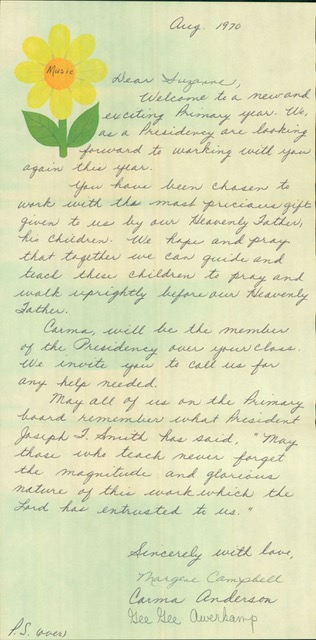 Aug. 1970
Music
Dear Suzanne,
Welcome to a new and
exciting Primary year. We,
as a Presidency are looking
forward to working with you
again this year.
You have been chosen to
work with the most precious gift
given to us by our Heavenly Father,
his children. We hope and pray
that together we can guide and
teach these children to pray and
walk uprightly before our Heavenly
Father.
Carma, will be the member
of the Presidency over your class.
We invite you to call us for
any help needed.
May all of us on the Primary
board remember what President
Joseph F. Smith has said, "May
those who teach never forget
the magnitude and glorious
nature of this work which the
Lord has entrusted to us."
Sincerely with love,
Margene Campbell
Carma Anderson
Gee Gee Averkamp
P.S. over